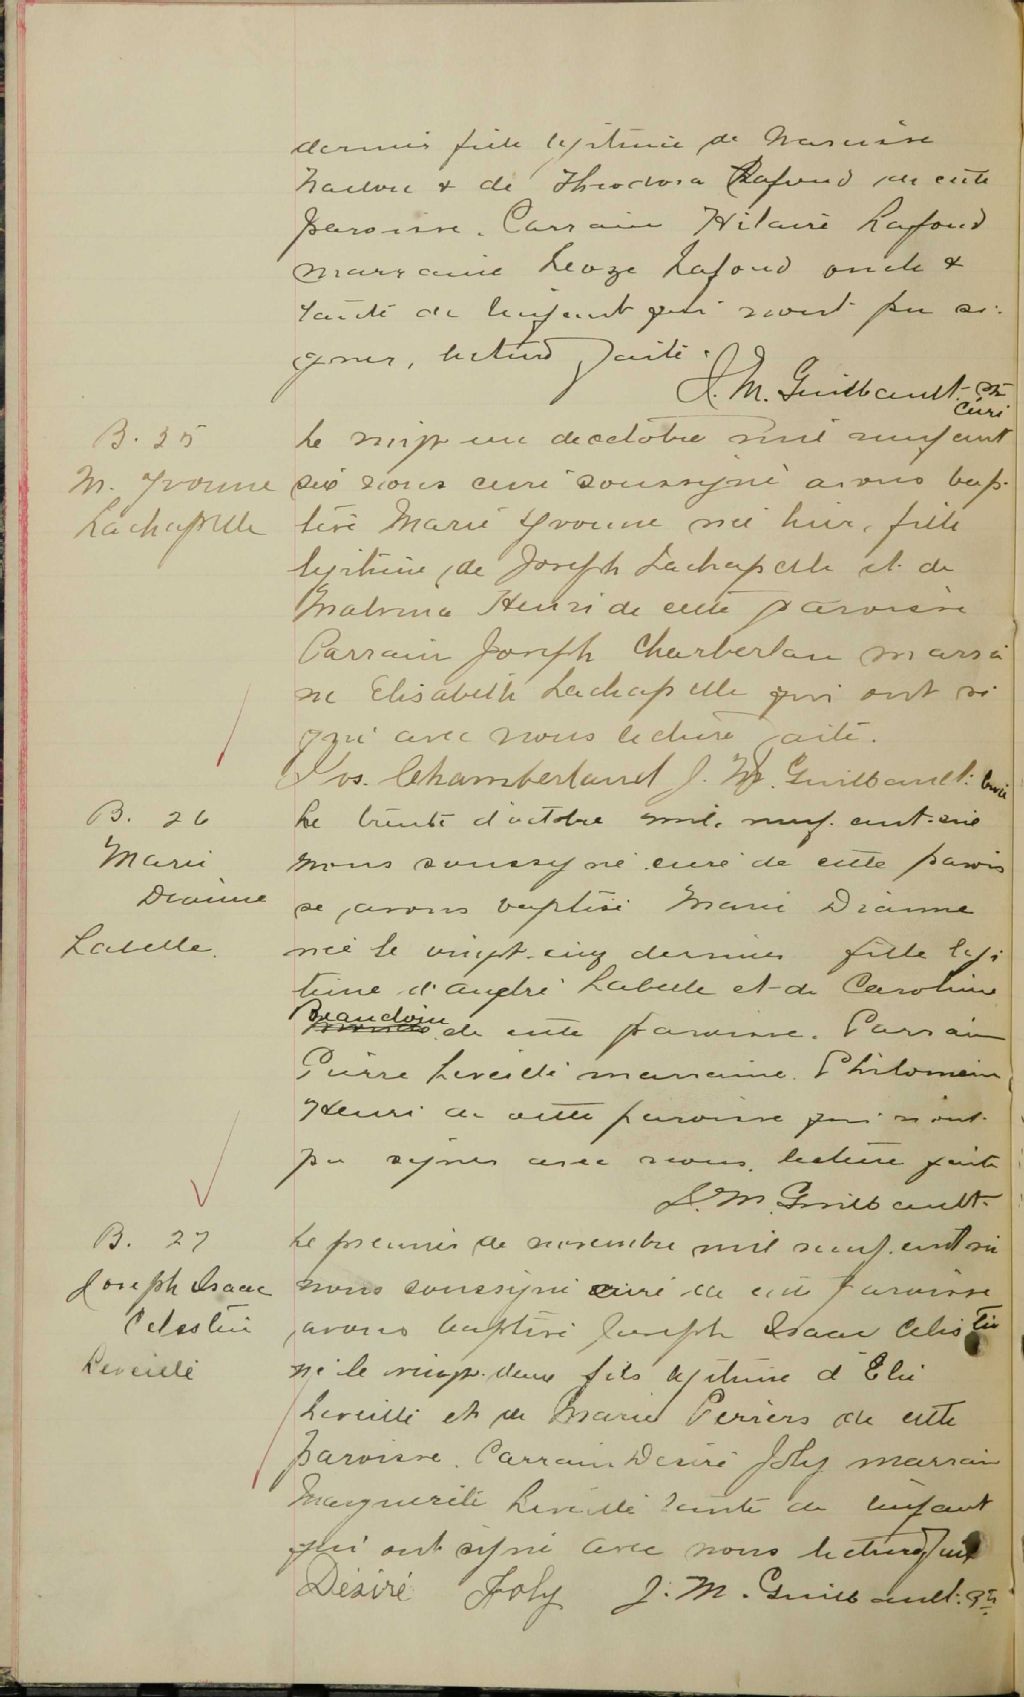 dernier fille légitime de Narcisse
Nadon & de Theodora Lafond de cette
paroisse. Parrain Hilaire Lafond
marraine Leoze Lafond oncle &
tante de l'enfant qui n'ont pu si-
gner, lecture faite.
J. M. Guilbault. Ptr
curé
B. 25
M. Yvonne
Lachapelle
Le vingt un de octobre mil neuf cent
six nous curé soussigné avons bap-
tisé Marie Yvonne née hier, fille
légitime de Joseph Lachapelle et de
Malvina Henri de cette paroisse
Parrain Joseph Chamberlan marrai
ne Elisabeth Lachapelle qui ont si
gné avec nous lecture faite.
Jos. Chamberland J. M. Guilbault. curé
B. 26
Marie
Dianne
Labelle.
Le trente d'octobre mil neuf cent six
nous soussigné curé de cette parois
se, avons baptisé Marie Dianne
née le vingt-cinq dernier fille légi
time d'André Labelle et de Caroline
Beaudoin de cette paroisse. Parrain
Pierre Leveillé marraine. Philomène
Henri de cette paroisse qui n'ont
pu signer avec nous. lecture faite
J. M. Guilbault.
B. 27
Joseph Isaac
Celestin
Leveillé
Le premier de novembre mil neuf cent six
nous soussigné curé de cette paroisse
avons baptisé Joseph Isaac Celestin
né le vingt-deux fils légitime d'Elie
Leveillé et de Marie Perriers de cette
paroisse. Parrain Desiré Joly marrain
Marguerite Leveillé tante de l'enfant
qui ont signé avec nous lecture faite
Désiré Joly J. M. Guilbault. Ptr